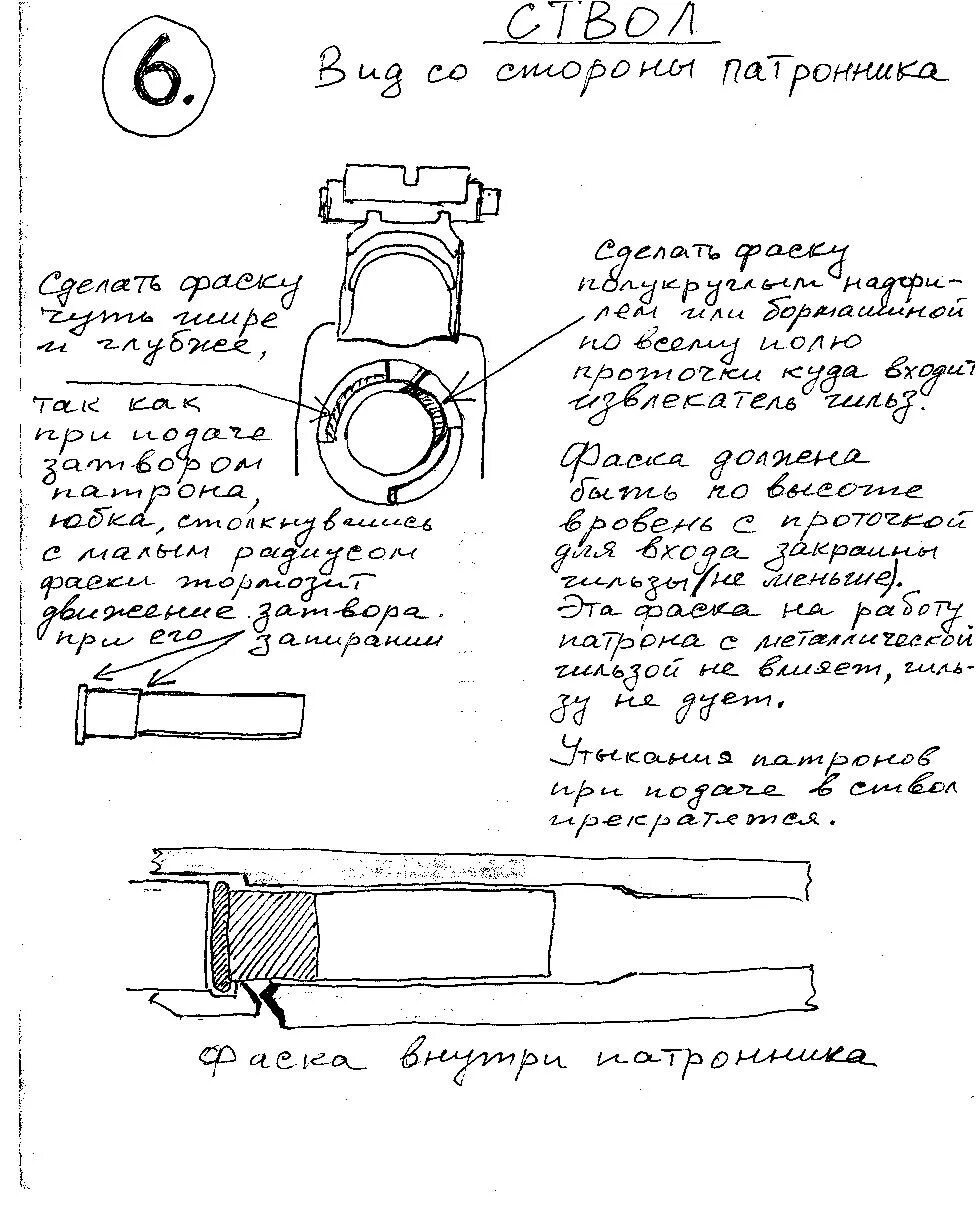 6.
СТВОЛ
Вид со стороны патронника
Сделать фаску
чуть шире
и глубже,
так как
при подаче
затвором
патрона,
юбка, столкнувшись
с малым радиусом
фаски тормозит
движение затвора
при его запирании
Сделать фаску
полукруглым надфи-
лем или бормашиной
по всему полю
проточки куда входит
извлекатель гильз.
Фаска должена
быть по высоте
вровень с проточкой
для входа закраины
гильзы (не меньше).
Эта фаска на работу
патрона с металлической
гильзой не влияет, гиль-
зу не дует.
Утыкания патронов
при подаче в ствол
прекратятся.
Фаска внутри патронника